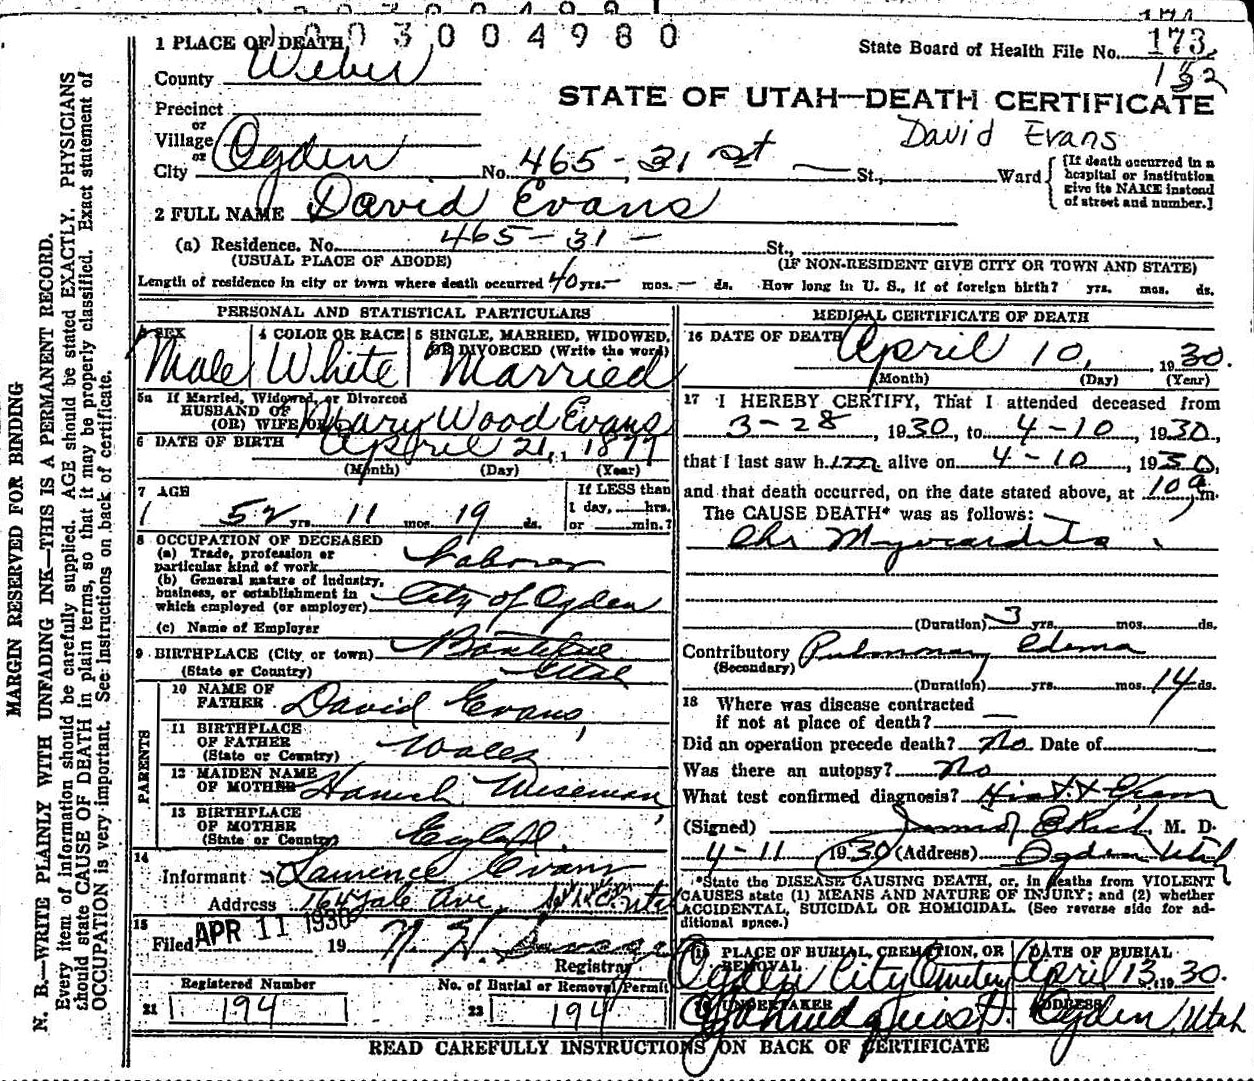 1003004980
1 PLACE OF DEATH
State Board of Health File No. 173
152
County Weber
STATE OF UTAH—DEATH CERTIFICATE
Precinct
or
Village
or
City Ogden No. 465-31 st St., Ward
David Evans
[If death occurred in a
hospital or institution
give its NAME instead
of street and number.]
2 FULL NAME David Evans
(a) Residence. No. 465-31- St.,
(USUAL PLACE OF ABODE) (IF NON-RESIDENT GIVE CITY OR TOWN AND STATE)
Length of residence in city or town where death occurred 40 yrs.- mos.- ds. How long in U. S., if of foreign birth? yrs. mos. ds.
PERSONAL AND STATISTICAL PARTICULARS
3 SEX
Male
4 COLOR OR RACE
White
5 SINGLE, MARRIED, WIDOWED,
OR DIVORCED (Write the word)
Married
5a If Married, Widowed, or Divorced
HUSBAND OF
(OR) WIFE OF Mary Wood Evans
6 DATE OF BIRTH April 21, 1877
(Month) (Day) (Year)
7 AGE
52 yrs. 11 mos. 19 ds.
If LESS than
1 day, hrs.
or min.?
8 OCCUPATION OF DECEASED
(a) Trade, profession or
particular kind of work Laborer
(b) General nature of industry,
business, or establishment in
which employed (or employer) City of Ogden
(c) Name of Employer
9 BIRTHPLACE (City or town) Bontiful
(State or Country) Utah
PARENTS
10 NAME OF
FATHER David Evans
11 BIRTHPLACE
OF FATHER
(State or Country) Wales
12 MAIDEN NAME
OF MOTHER Wiseman
13 BIRTHPLACE
OF MOTHER
(State or Country)
14
Informant Laurence Evans
Address 764 Yale Ave Utah
15
Filed APR 11 1930 19
Registrar
Registered Number
21 194
No. of Burial or Removal Permit
22 194
MEDICAL CERTIFICATE OF DEATH
16 DATE OF DEATH April 10, 1930.
(Month) (Day) (Year)
17 I HEREBY CERTIFY, That I attended deceased from
3-28, 1930, to 4-10, 1930,
that I last saw him alive on 4-10, 1930,
and that death occurred, on the date stated above, at 10 a m.
The CAUSE DEATH* was as follows:
Chr Myocarditis
(Duration) 3 yrs. mos. ds.
Contributory Pulmonary Edema
(Secondary)
(Duration) yrs. mos. 14 ds.
18 Where was disease contracted
if not at place of death? —
Did an operation precede death? No Date of
Was there an autopsy? No
What test confirmed diagnosis? Hist. & Exam
(Signed) M. D.
4-11 1930 (Address) Ogden Utah
*State the DISEASE CAUSING DEATH, or, in deaths from VIOLENT
CAUSES state (1) MEANS AND NATURE OF INJURY; and (2) whether
ACCIDENTAL, SUICIDAL OR HOMICIDAL. (See reverse side for ad-
ditional space.)
19 PLACE OF BURIAL, CREMATION, OR
REMOVAL
Ogden City Cemetery
DATE OF BURIAL
April 13, 1930.
20 UNDERTAKER
ADDRESS
Ogden, Utah
READ CAREFULLY INSTRUCTIONS ON BACK OF CERTIFICATE
MARGIN RESERVED FOR BINDING
N. B.—WRITE PLAINLY WITH UNFADING INK—THIS IS A PERMANENT RECORD.
Every item of information should be carefully supplied. AGE should be stated EXACTLY. PHYSICIANS
should state CAUSE OF DEATH in plain terms, so that it may be properly classified. Exact statement of
OCCUPATION is very important. See Instructions on back of certificate.